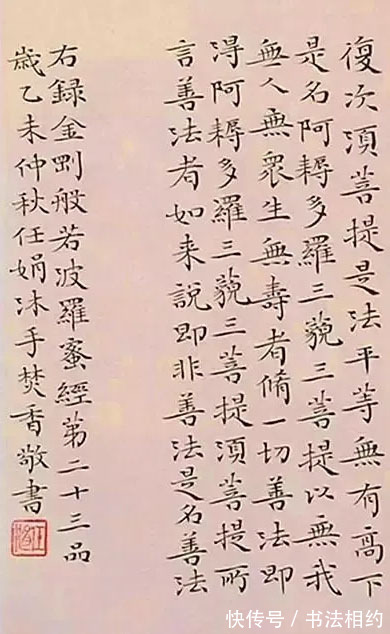 復次須菩提是法平等無有高下
是名阿耨多羅三藐三菩提以無我
無人無衆生無壽者脩一切善法即
得阿耨多羅三藐三菩提須菩提所
言善法者如来說即非善法是名善法
右録金剛般若波羅蜜經第二十三品
歲乙未仲秋任娟沐手焚香敬書
快传号/书法相约